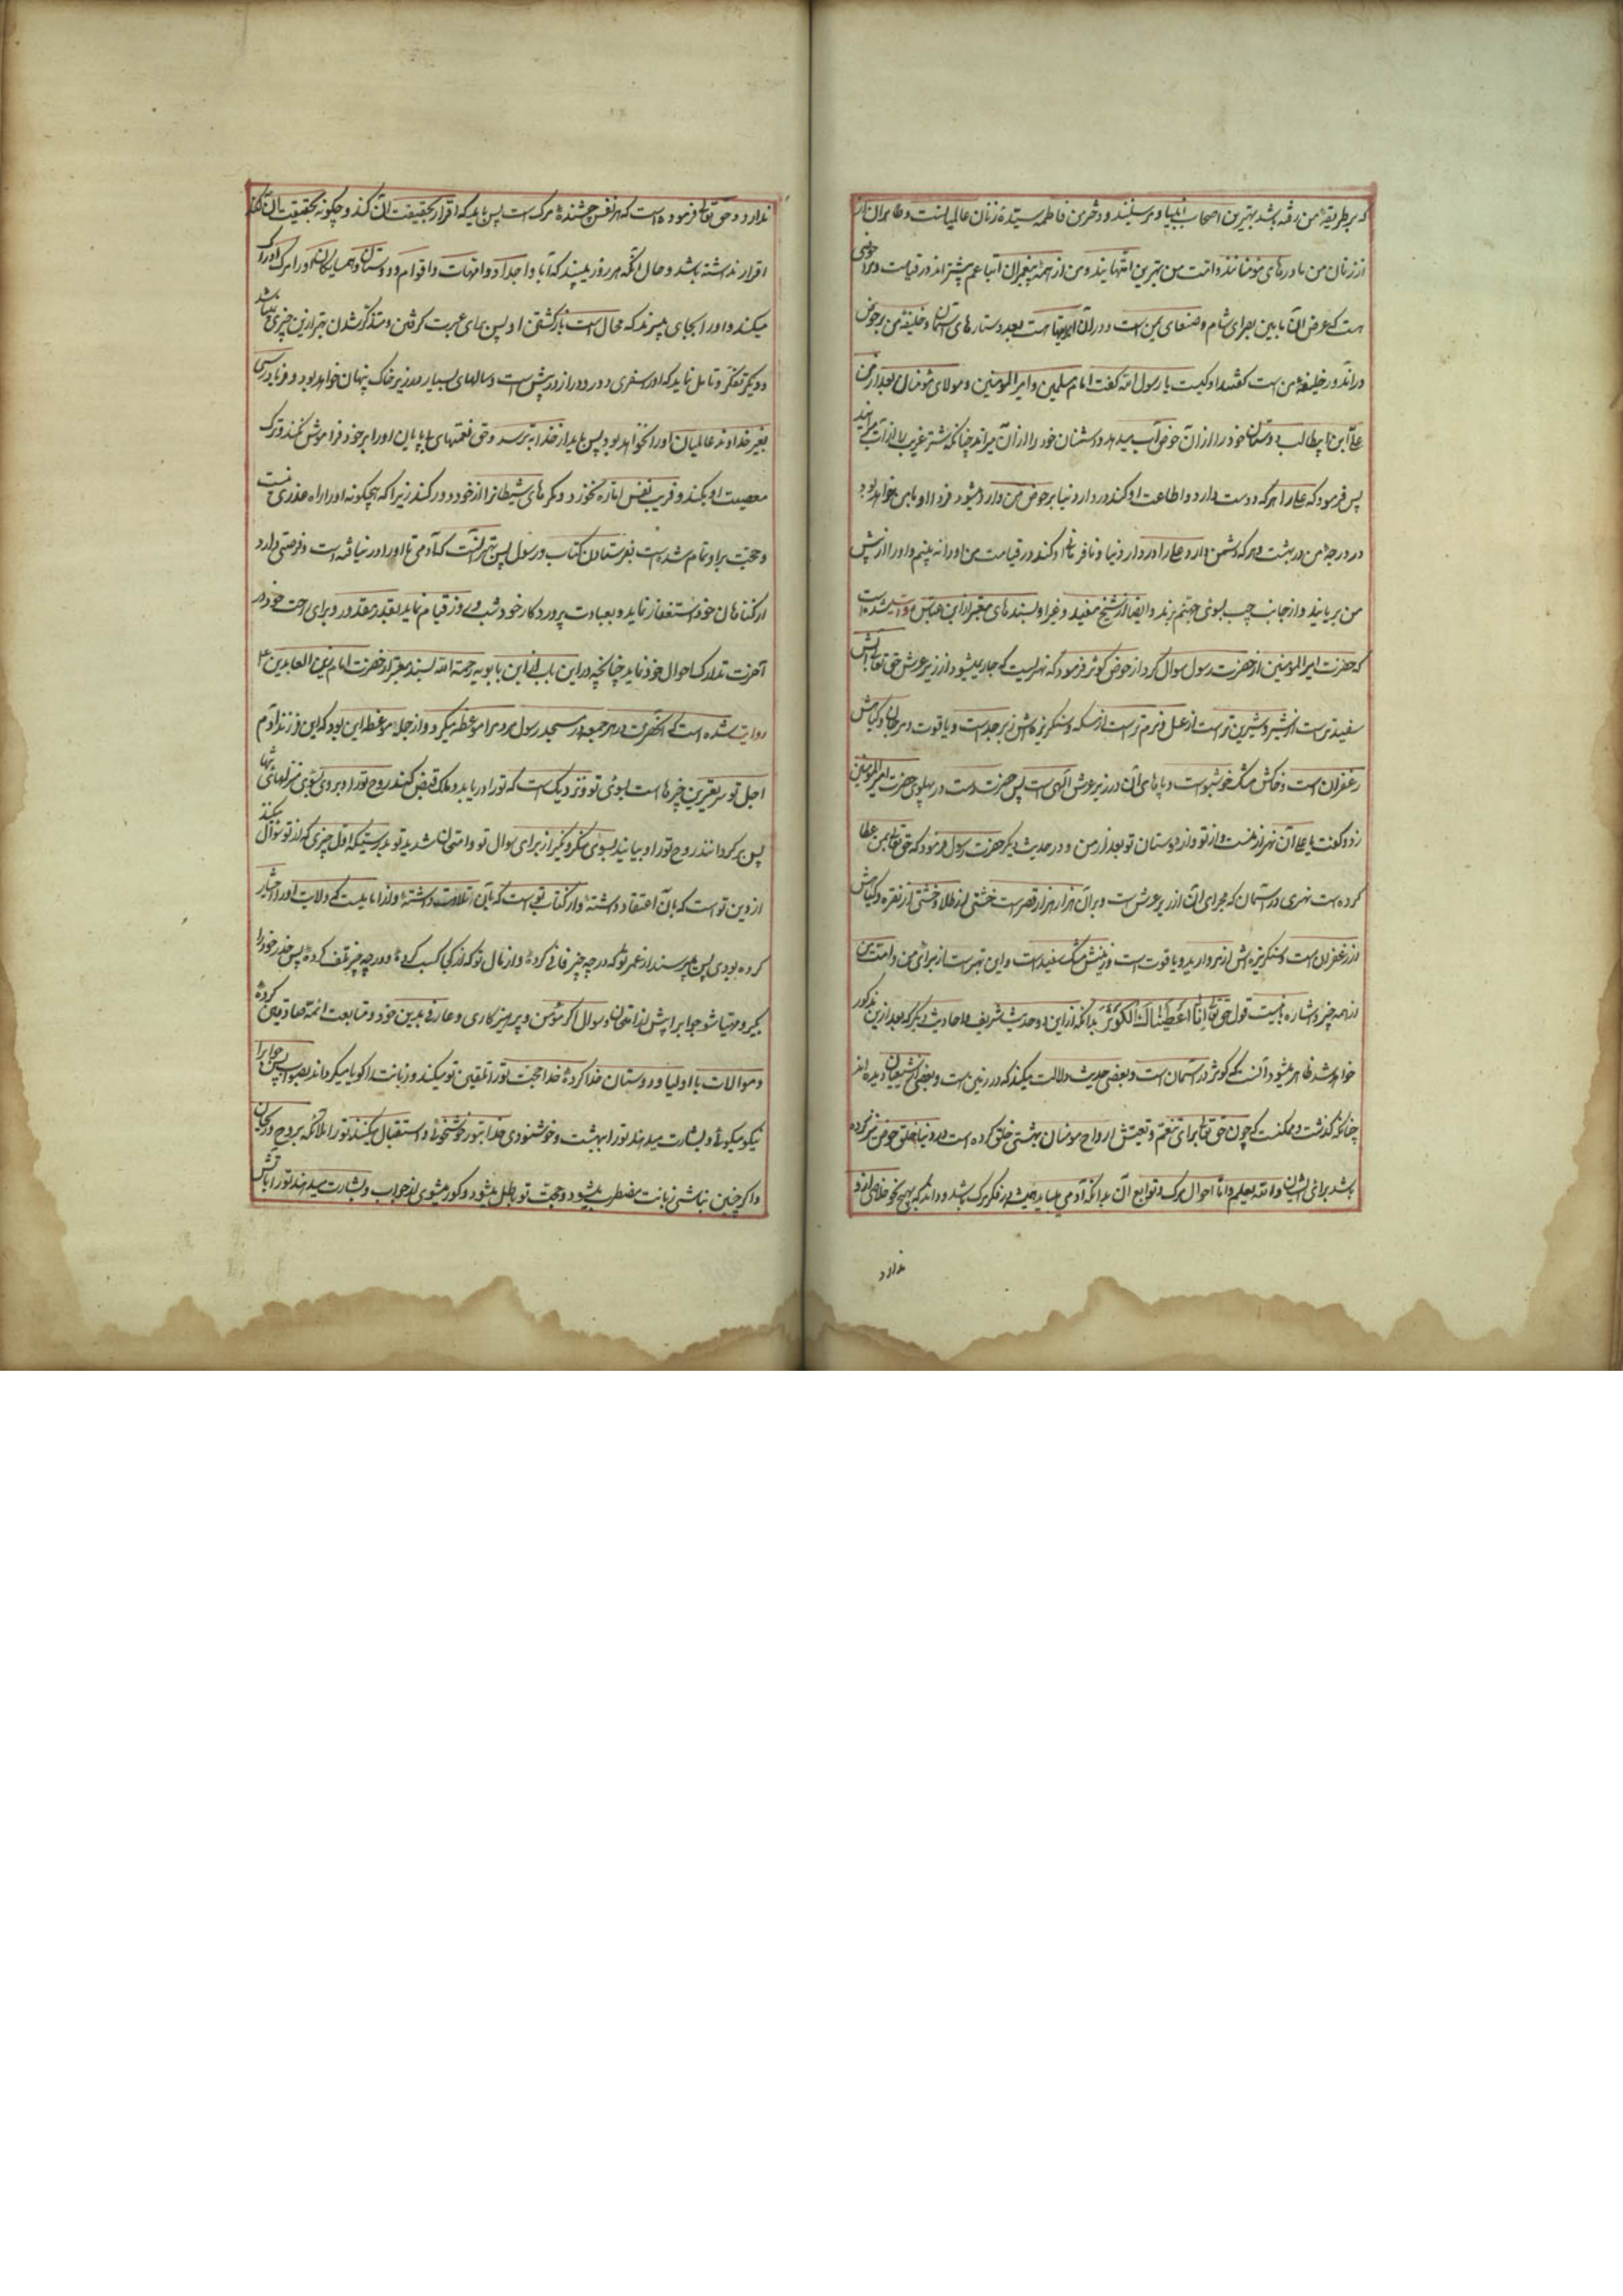 که بر طریقهٔ من رفته باشد بهترین اصحاب انبیا و مرسلینند و دخترم فاطمه سیّدهٔ زنان عالمیانست و طاهران از
از زنان من مادرهای مؤمنانند و امّت من بهترین امّتهایند و من از همهٔ پیغمبران اتباعم بیشتراند در قیامت و مرا حوضی
است که عرض آن مابین بصرای شام و صنعای یمن است و در آن ابریقها هست بعدد ستارهای آسمان و خلیفهٔ من بر حوض
در آنروز خلیفهٔ من است گفتند او کیست یا رسول الله گفت امام مسلمین و امیرالمؤمنین و مولای مؤمنان بعد از من
علیّ ابن ابیطالب دوستان خود را از آن حوض آب میدهد و دشمنان خود را از آن میراند چنانکه شتر غریب را از آب میرانند
پس فرمود که علی را هرکه دوست دارد و اطاعت او کند در دار دنیا بر حوض من وارد میشود فردا و با من خواهد بود
در درجهٔ من در بهشت و هرکه دشمن دارد علی را در دار دنیا و نافرمانی او کند در قیامت من او را نه بینم و او را از پیش
من بربایند و از جانب چپ بسوی جهنم برند و ایضا از شیخ مفید و غیر او بسندهای معتبر از ابن عباس روایت شده است
که حضرت امیرالمؤمنین از حضرت رسول سوال کرد از حوض کوثر فرمود که نهریست که جاری میشود از زیر عرش حق تعالی آبش
سفیدتر است از شیر و شیرین‌تر است از عسل و نرم‌تر است از مسکه و سنگریزه‌اش زبرجد است و یاقوت و مرجان و گیاهش
زعفران است و خاکش مشک خوشبو است و پاهای آن در زیر عرش الهی است پس حضرت دست در پهلوی حضرت امیرالمؤمنین
زد و گفت یا علی آن نهر از منست و از تو و از دوستان تو بعد از من و در حدیث دیگر حضرت رسول فرمود که حق تعالی بمن عطا
کرده است نهری در آسمان که مجرای آن از زیر عرش است و بر آن هزار هزار قصر است خشتی از طلا و خشتی از نقره و گیاهش
از زعفران است و سنگریزه‌اش از مروارید و یاقوت است و زمینش مشک سفید است و این بهتر است از برای من و امت من
از همه چیز و اشاره باینست قول حق تعالی انّا اَعْطَیْنَاكَ الْكَوْثَرَ بدانکه از این دو حدیث شریف و احادیث دیگر که بعد ازین مذکور
خواهد شد ظاهر میشود آنست که کوثر در آسمان است و بعضی حدیث دلالت میکند که در زمین است و بعضی از شیعیان دیده‌اند
چنانکه گذشت و ممکنست که چون حق تعالی برای تنعّم و تعیّش ارواح مومنان بهشتی خلق کرده است در دنیا خلق حوضی نیز کرده
باشد برای ایشان والله یعلم و امّا احوال مرگ و توابع آن بدانکه آدمی میباید همیشه در فکر مرگ باشد و داند که بهیچ نحو خلاصی ازو
ندارد
ندارد و حق تعالی فرموده است که هر نفس چشندهٔ مرگ است پس باید که اقرار بحقیقت آن کند و چگونه بحقیقت آن کند
اقرار نداشته باشد و حال آنکه هر روز میبیند که آبا و اجداد و امّهات و اقوام و دوستان و همسایگان او را مرگ ادراک
میکند و او را بجای میبرند که محال است بازگشتن او پس برای عبرت گرفتن و متذکر شدن بهتر ازین چیزی نمیباشد
و دیگر تفکّر و تأمل نماید که او را سفری دور و دراز در پیش است و سالهای بسیار در زیر خاک پنهان خواهد بود و فریادرسی
بغیر خداوند عالمیان او را نخواهد بود پس باید از خدا بترسد و حق نعمتهای بی‌پایان او را بر خود فراموش نکند و ترک
معصیت او بکند و فریب نفس امّاره نخورد و مکرهای شیطانرا از خود دور کند زیرا که هیچگونه او را راه عذری نیست
و حجّت بر او تمام شده است بفرستادن کتاب و رسول پس بهتر آنست که آدمی تا او را در دنیا قوّه است و فرصتی دارد
از گناهان خود استغفار نماید و بعبادت پروردگار خود شب و روز قیام نماید بقدر مقدور و برای راحت خود در
آخرت تدارک احوال خود نماید چنانچه در این باب از ابن بابویه رحمة الله بسند معتبر از حضرت امام زین العابدین ع
روایت شده است که آنحضرت در هر جمعه در مسجد رسول مردم را موعظه میکرد و از جمله موعظه این بود که این فرزند آدم
اجل تو سریعترین چیزها است بسوی تو و نزدیک است که تو را دریابد و ملک قبض کند روح تو را و بروی بسوی منزلهای تنها
پس برگردانند روح تو را و بیایند بسوی منکر و نکیر از برای سوال تو و امتحان شدید تو بدرستیکه اول چیزی که از تو سؤال میکنند
از دین تو است که بآن اعتقاد داشتهٔ و از کتاب تو است که بآن تلاوت داشتهٔ و از امامیست که ولایت او را اختیار
کرده بودی پس میپرسند از عمر تو که در چه چیز فانی کردهٔ و از مال تو که از کجا کسب کردهٔ و در چه چیز تلف کردهٔ پس حذر خود را
بگیر و مهیّا شو جوابرا پیش از امتحان و سوال اگر مؤمن و پرهیزکاری و عارفی بدین خود و متابعت ائمّه صادقین کردهٔ
و موالات با اولیا و دوستان خدا کردهٔ خدا حجّت تو را تلقین تو میکند و زبانت را گویا میگرداند بصواب پس جوابرا
نیکو میگوئی و بشارت میدهند تو را ببهشت و خوشنودی خدا بتو و خوشخوئی و استقبال میکنند تو را ملائکه بروح و ریحان
و اگر چنین نباشی زبانت مضطرب میشود و حجّت تو باطل میشود و کور میشوی از جواب و بشارت میدهند تو را بآتش